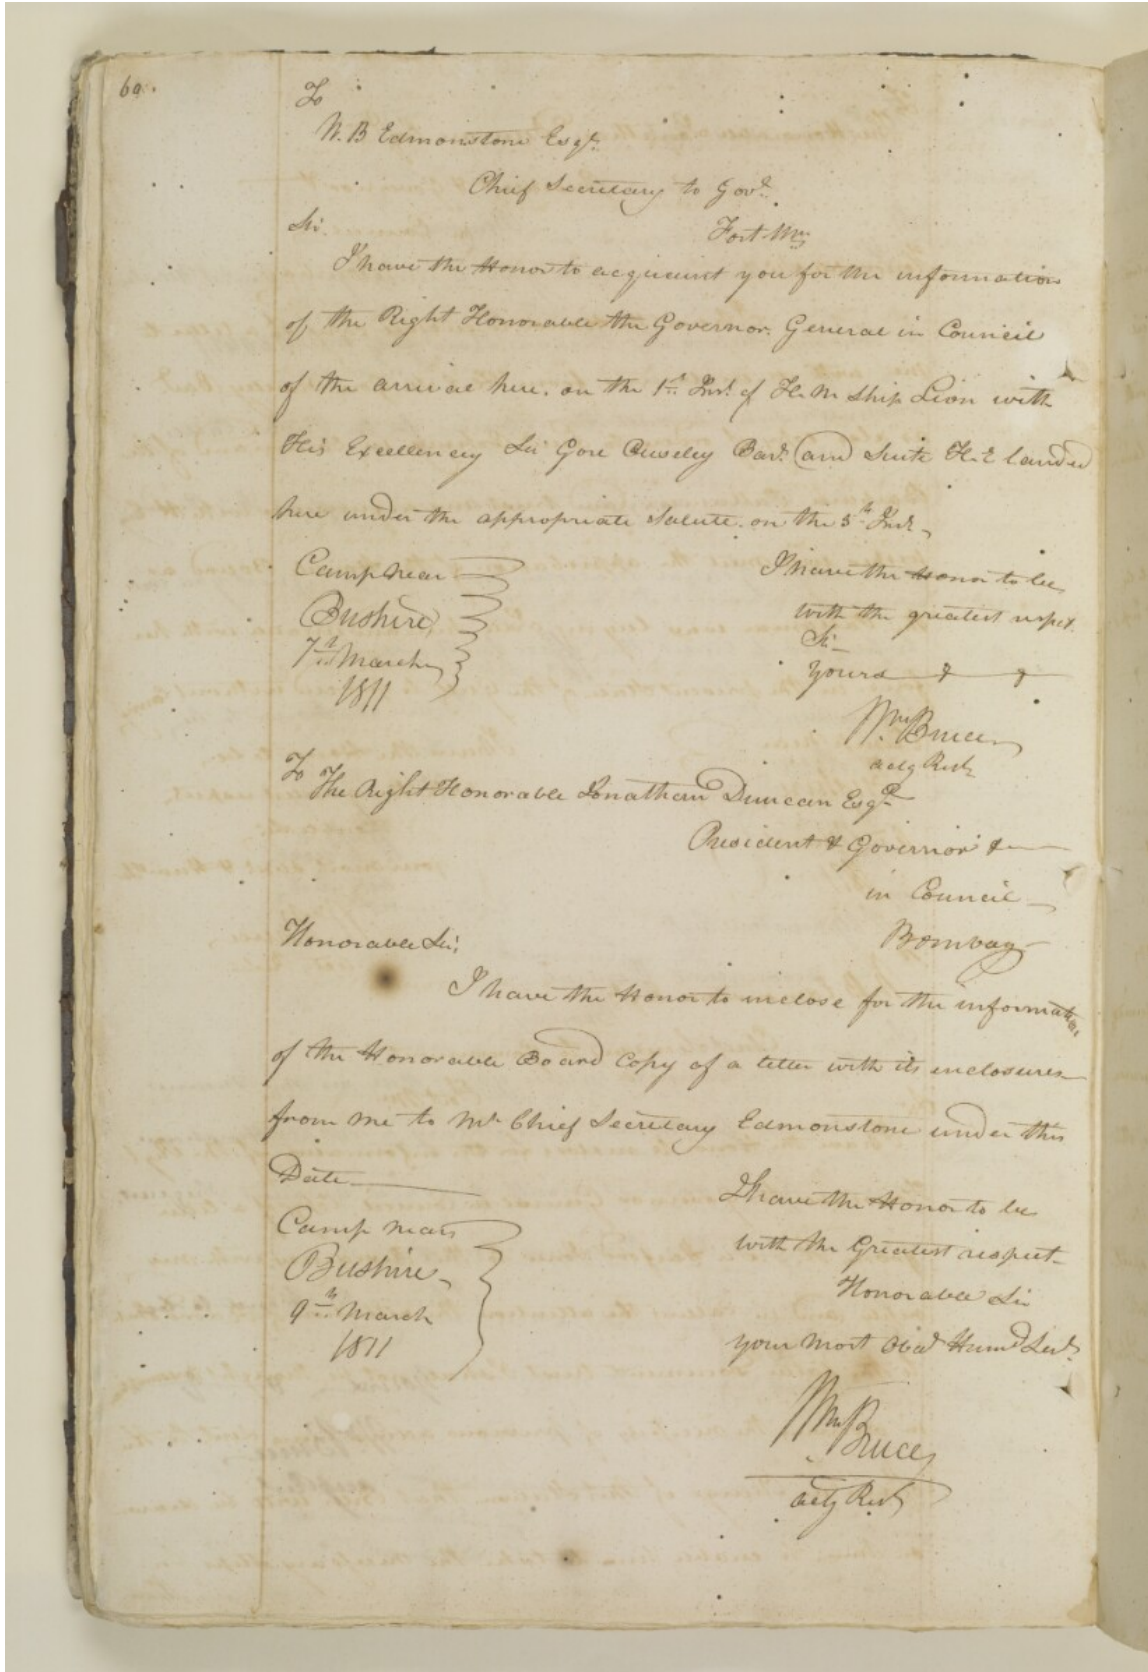 60.
To
N. B Edmonstone Esqr.
Chief Secretary to Govt.
Sir. Fort Wm
I have the Honor to acquaint you for the information
of the Right Honorable the Governor General in Council
of the arrival here, on the 1st Inst. of H. M Ship Lion with
His Excellency Sir Gore Ouseley Bart. and Suite H. E landed
here under the appropriate Salute on the 5th Inst
Camp near
Bushire
7th March
1811
I have the Honor to be
with the greatest respect.
Sir
Yours & &
Wm. Bruce
actg Resdt
To
The Right Honorable Jonathan Duncan Esqr.
President & Governor &
in Council
Honorable Sir, Bombay
I have the Honor to inclose for the information
of the Honorable Board Copy of a letter with its enclosures
from me to Mr. Chief Secretary Edmonstone under this
Date
Camp near
Bushire
9th March
1811
I have the Honor to be
with the Greatest respect
Honorable Sir
your most Obedt Humbl Servt.
Wm Bruce
actg Resdt